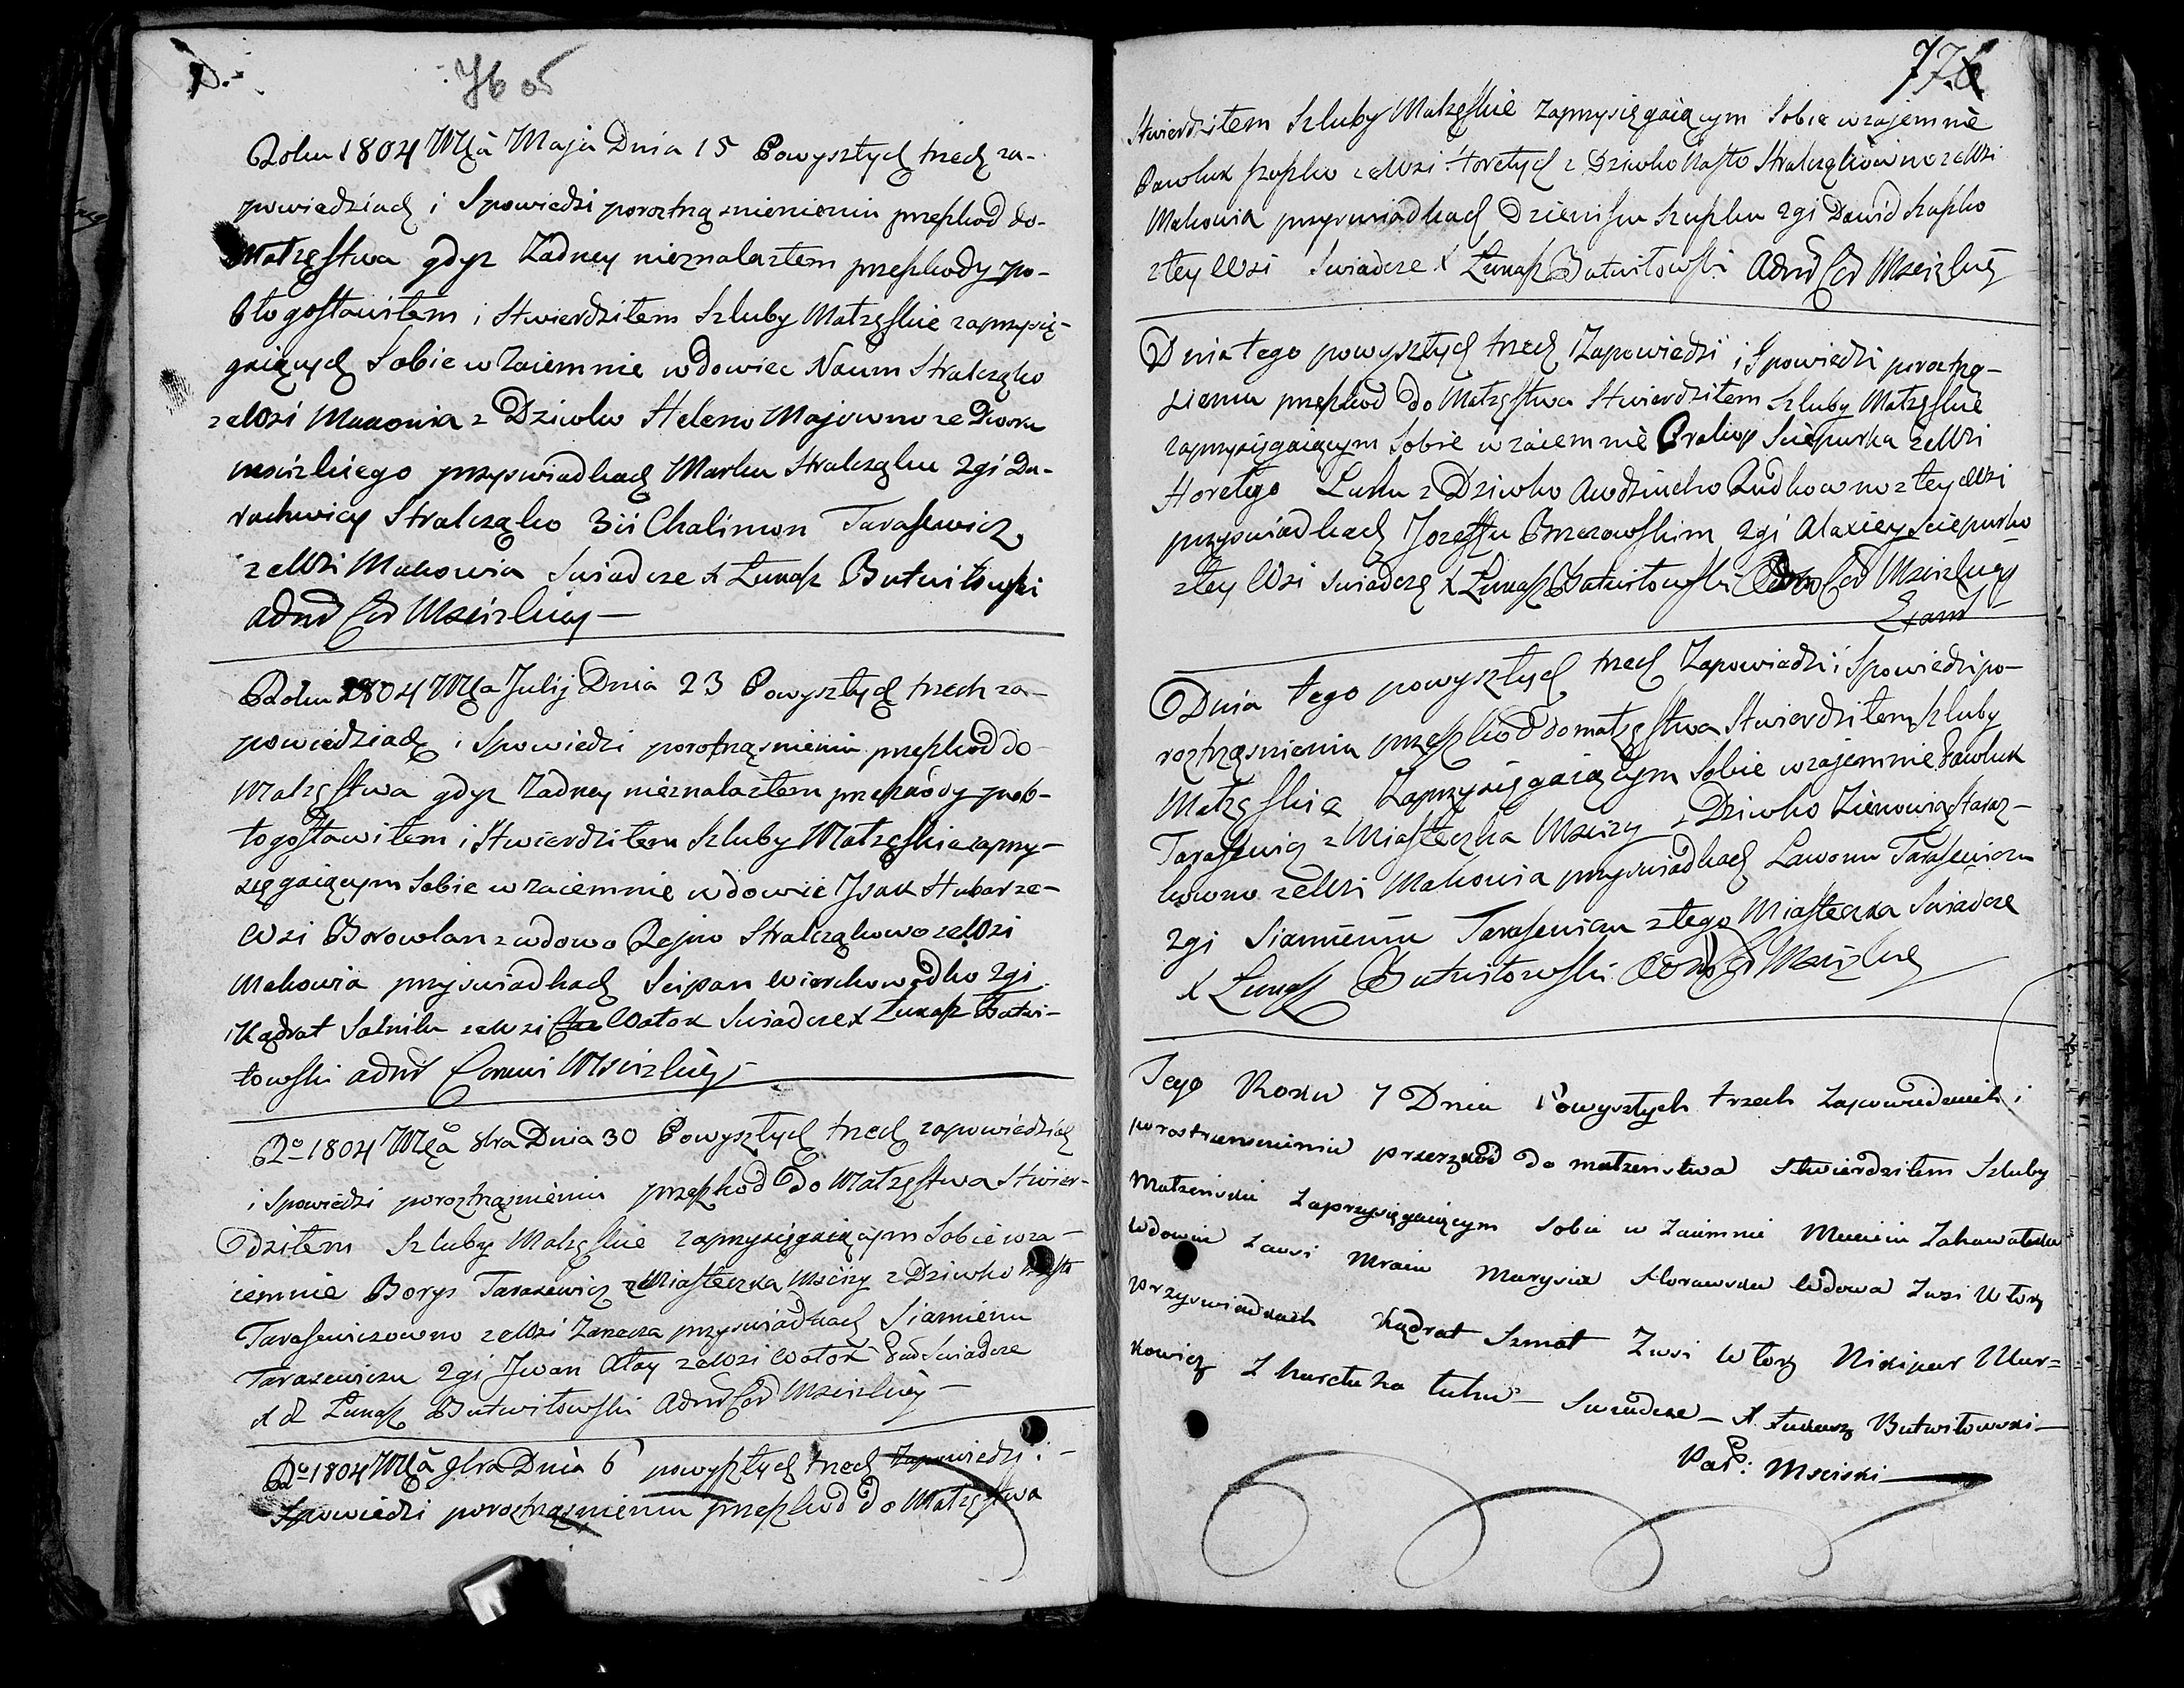 76
Roku 1804 Mca Maja Dnia 15 Powyszłych trzech za-
powiedziach i Spowiedzi poroztrząsnieniu przeszkod do-
Małzęstwa gdyz Zadney nieznalazłem przeszkody po-
błogosławiłem i Stwierdziłem Szluby Małzęskie zaprzysię-
gaiących Sobie wzaiemnie wdowiec Naum Stralcząko
zeWsi Makowia z Dziwko Heleno Majowno ze Dworu
mscizkiego przyswiadkach Marku Stralcząku 2gi
Stralcząko 3ci Chalimon Tarasewicz
zeWsi Makowia Swiadcze X Łukasz Butwiłowski
Admr Cer Mscizkiey
Roku 1804 Mca Julij Dnia 23 Powyszłych trzech za-
powiedziach i Spowiedzi poroztrząsnieniu przeszkod do
Małzęstwa gdyz Zadney nieznalazłem przeszkody pob-
łogosławiłem i Stwierdziłem Szluby Małzęskie zaprzy-
sięgaiącym Sobie wzaiemnie wdowiec Jsak Hubar ze-
Wsi Borowlan z wdowo Rejno Stralcząkowo zeWsi
Makowia przyswiadkach Scipan Wierchowodko 2gi
Kądrat Salnik zeWsi Watok Swiadcze X Łukasz Butwi-
łowski Admr Cerkwi Mscizkiey
Ro 1804 Mca 8bra Dnia 30 Powyszłych trzech zapowiedziach
i Spowiedzi poroztrząsnieniu przeszkod Do Małzęstwa Stwier-
dziłem Szluby Małzęskie zaprzysięgaiącym Sobie wza-
iemnie Borys Tarasewicz z Miasteczka Mscizy z Dziwko
Tarasewiczowno zeWsi Zarecza przyswiadkach Siamienu
Tarasewiczu 2gi Jwan Ałay zeWsi Watok Swiadcze
X Łukasz Butwiłowski Admr Cer Mscizkiey
Ro 1804 Mca 9bra Dnia 6 powyszłych trzech Zapowiedzi i
Spowiedzi poroztrząsnieniu przeszkod do Małzęstwa
77
Stwierdziłem Szluby Małzęskie Zaprzysięgaiącym Sobie wzajemnie
Pawluk Szupko zeWsi Horełych z Dziwko Nasto Stralcząkowno zeWsi
Makowia przyswiadkach Dzienisu Szupku 2gi Dawid Szupko
ztey Wsi Swiadcze X Łukasz Butwiłowski Admr Cer Mscizkiey
Dnia tego powyszłych trzech Zapowiedzi i Spowiedzi poroztrzą-
sieniu przeszkod do Małzęstwa Stwierdziłem Szluby Małzęskie
zaprzysięgaiącym Sobie wzaiemnie Prakop Sciepurka zeWsi
Horełego Łuhu z Dziwko Awdziucho Rudkowno z tey Wsi
przyswiadkach Jozefu Brzezowskim 2gi Alaxiey Sciepurko
ztey Wsi Swiadczę X Łukasz Butwiłowski Admr Cer Mscizkiey
Dnia tego powyszłych trzech Zapowiedzi i Spowiedzi po-
roztrząsnieniu przeszkod do małzęstwa Stwierdziłem Szluby
Małzęskie Zaprzysięgaiącym Sobie wzajemnie Pawluk
Tarasewicz z Miasteczka Mscizy z Dziwko Zienowia Stralcz-
kowno zeWsi Makowia przyswiadkach Lawonu Tarasewiczu
2gi Siamienu Tarasewiczu ztego Miasteczka Swiadcze
X Łukasz Butwiłowski Admr Cer Mscizkiey
Tego Roku 7 Dnia Powyszłych trzech Zapowiedziach i
porostrząsnieniu przeszkod do małzenstwa Stwierdziłem Szluby
Małzenskie Zaprzysięgaiącym Sobie wzaiemnie
wdowiec Marysia wdowa Zwsi
przyswiadkach Kądrat Szmat Zwsi Nikipar Mur=
kowicz Z Swiadcze X Łukasz Butwiłowski
Par: Msciski